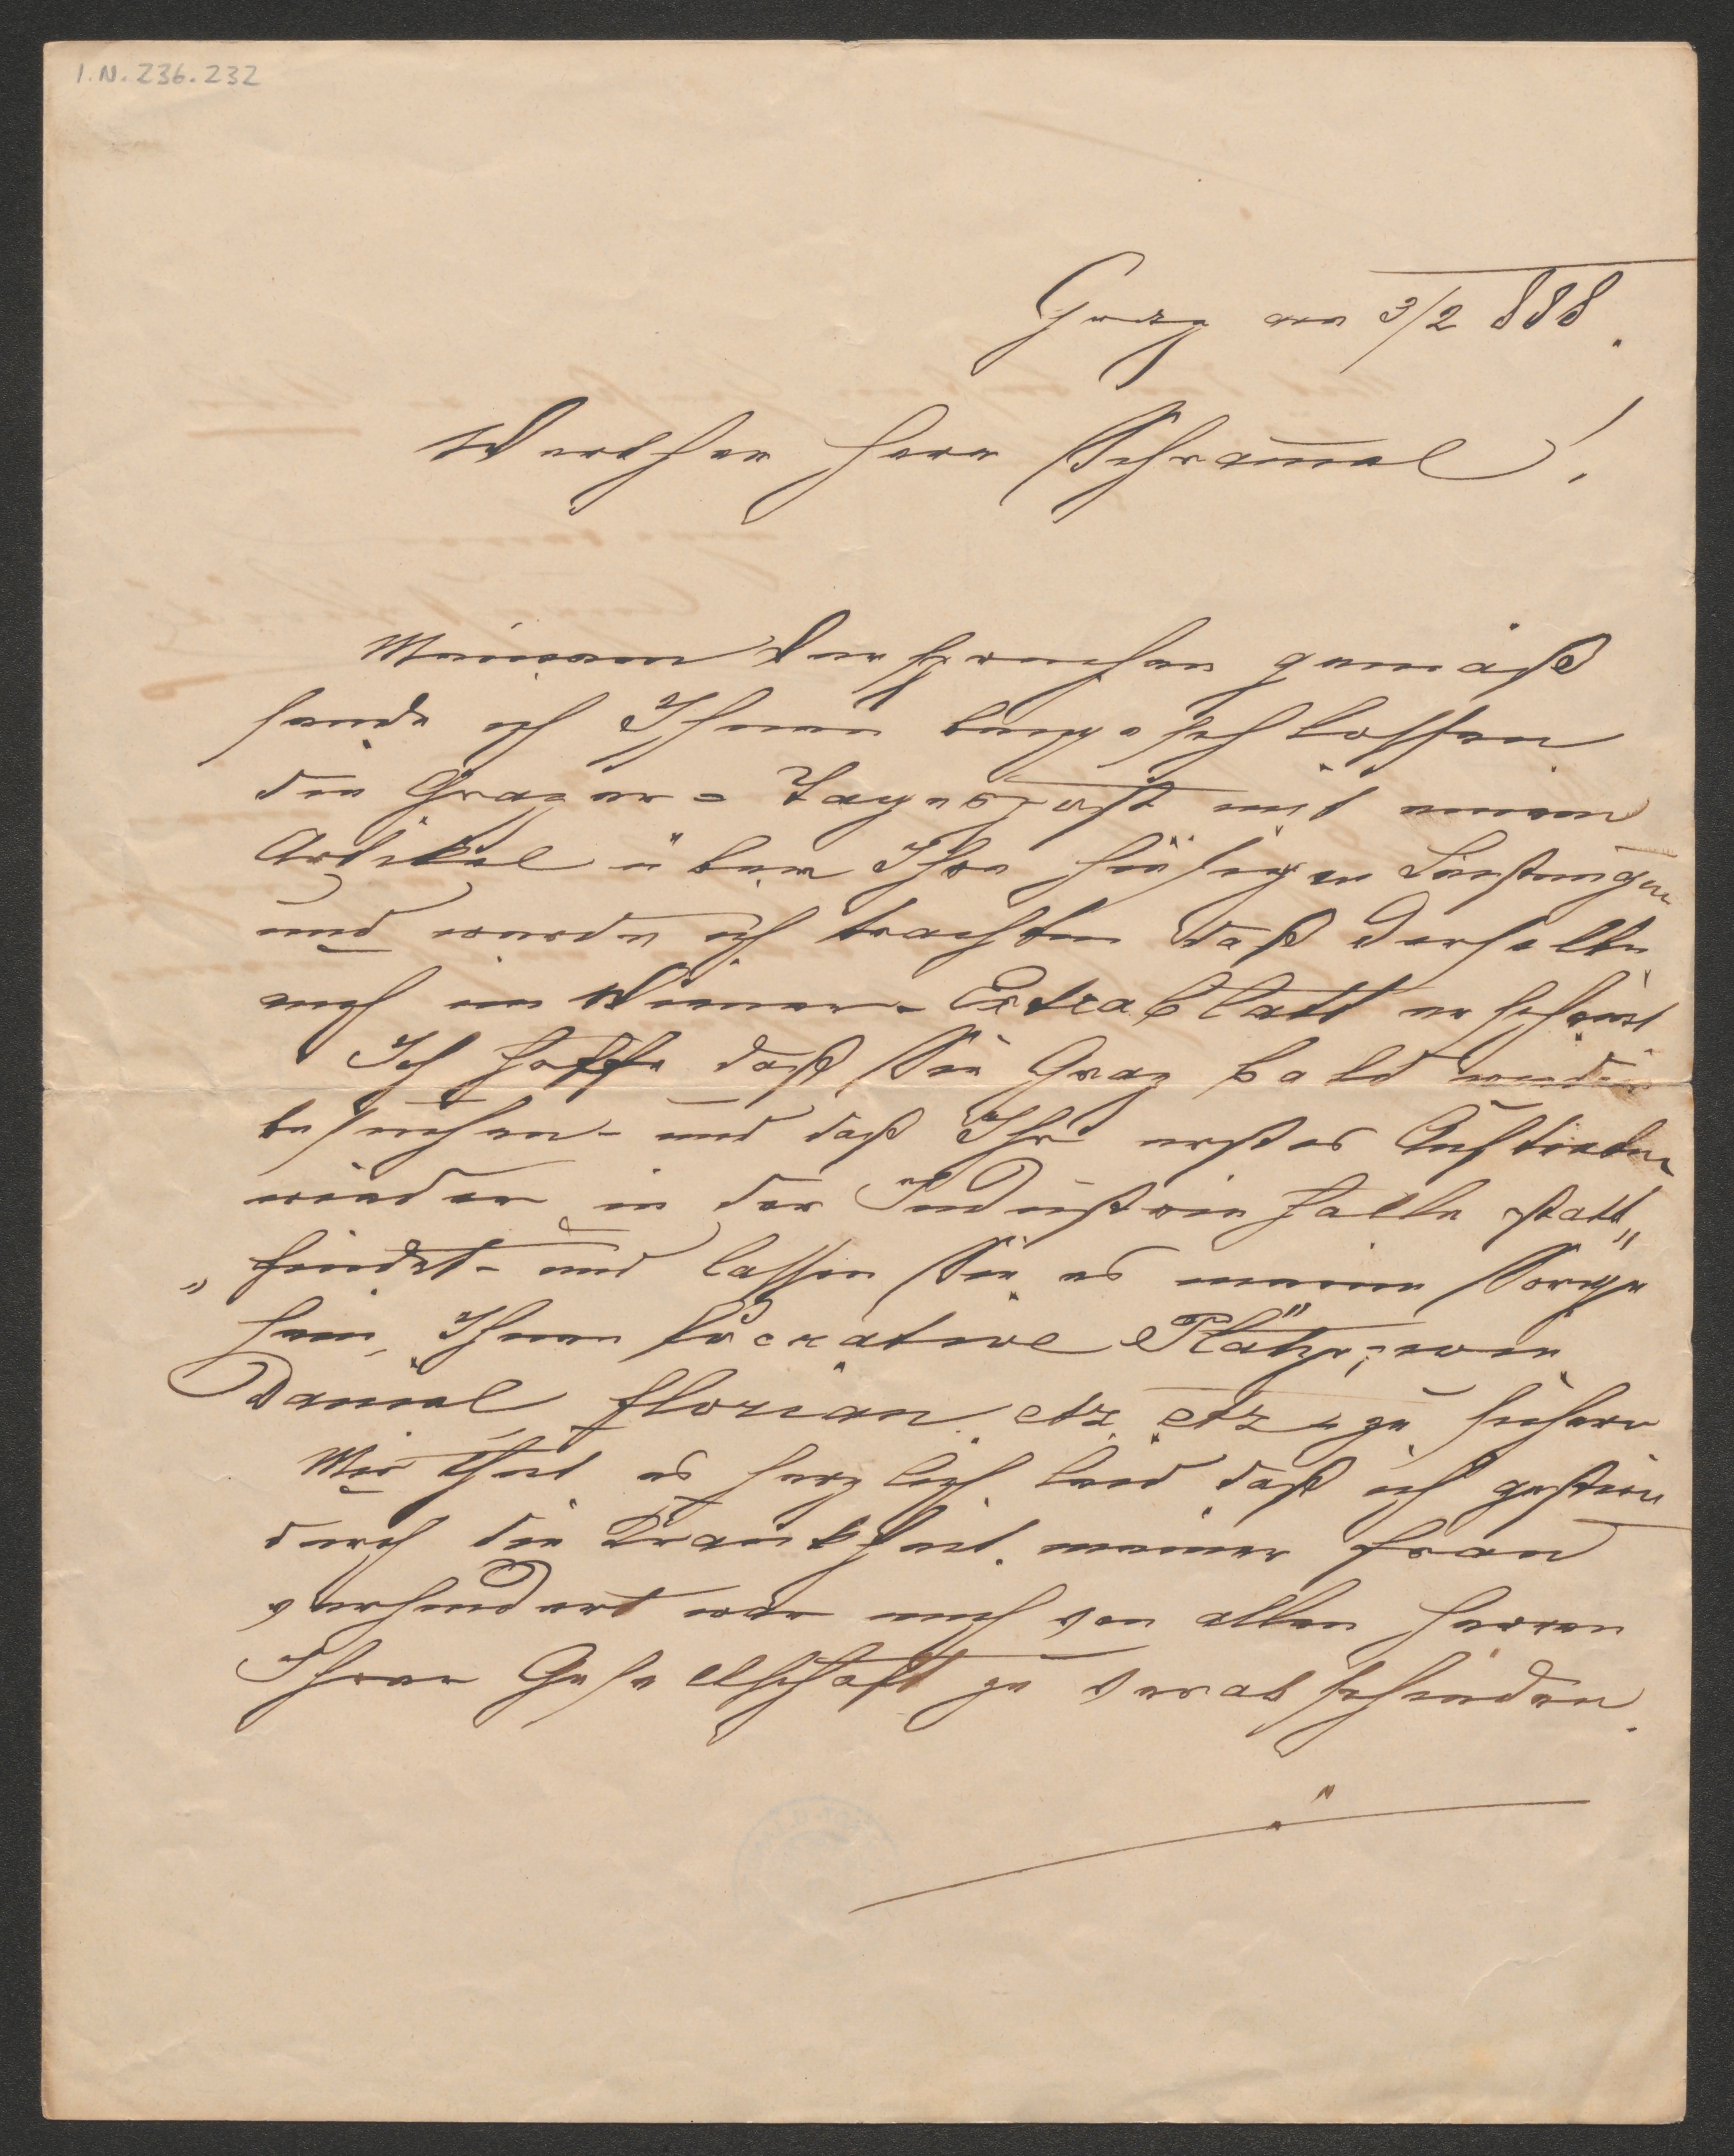 I.N. 236.232
Graz am 3/2 888.
Werther Herr Schram̅el!
Meinem Versprechen gemäß
sende ich Ihnen beigeschlossen
die Grazer=Tagespost mit einem
Artikel über Ihre hiesigen Leistungen
und werde ich trachten daß derselbe
auch im Wiener-Extrablatt erscheint
Ich hoffe daß Sie Graz bald wieder
besuchen- und daß Ihr erstes Auftreten
wieder in der Industriehalle statt„
„findet- und lassen Sie es meine Sorge
sein, Ihnen lucrative Plätze, wie
Daniel, Florian etz etz zu sichern
Mir thut es herzlich leid daß ich gestern
durch die Krankheit meiner Frau
verhindert war mich von allen Herren
Ihrer Gesellschaft zu verabschieden.